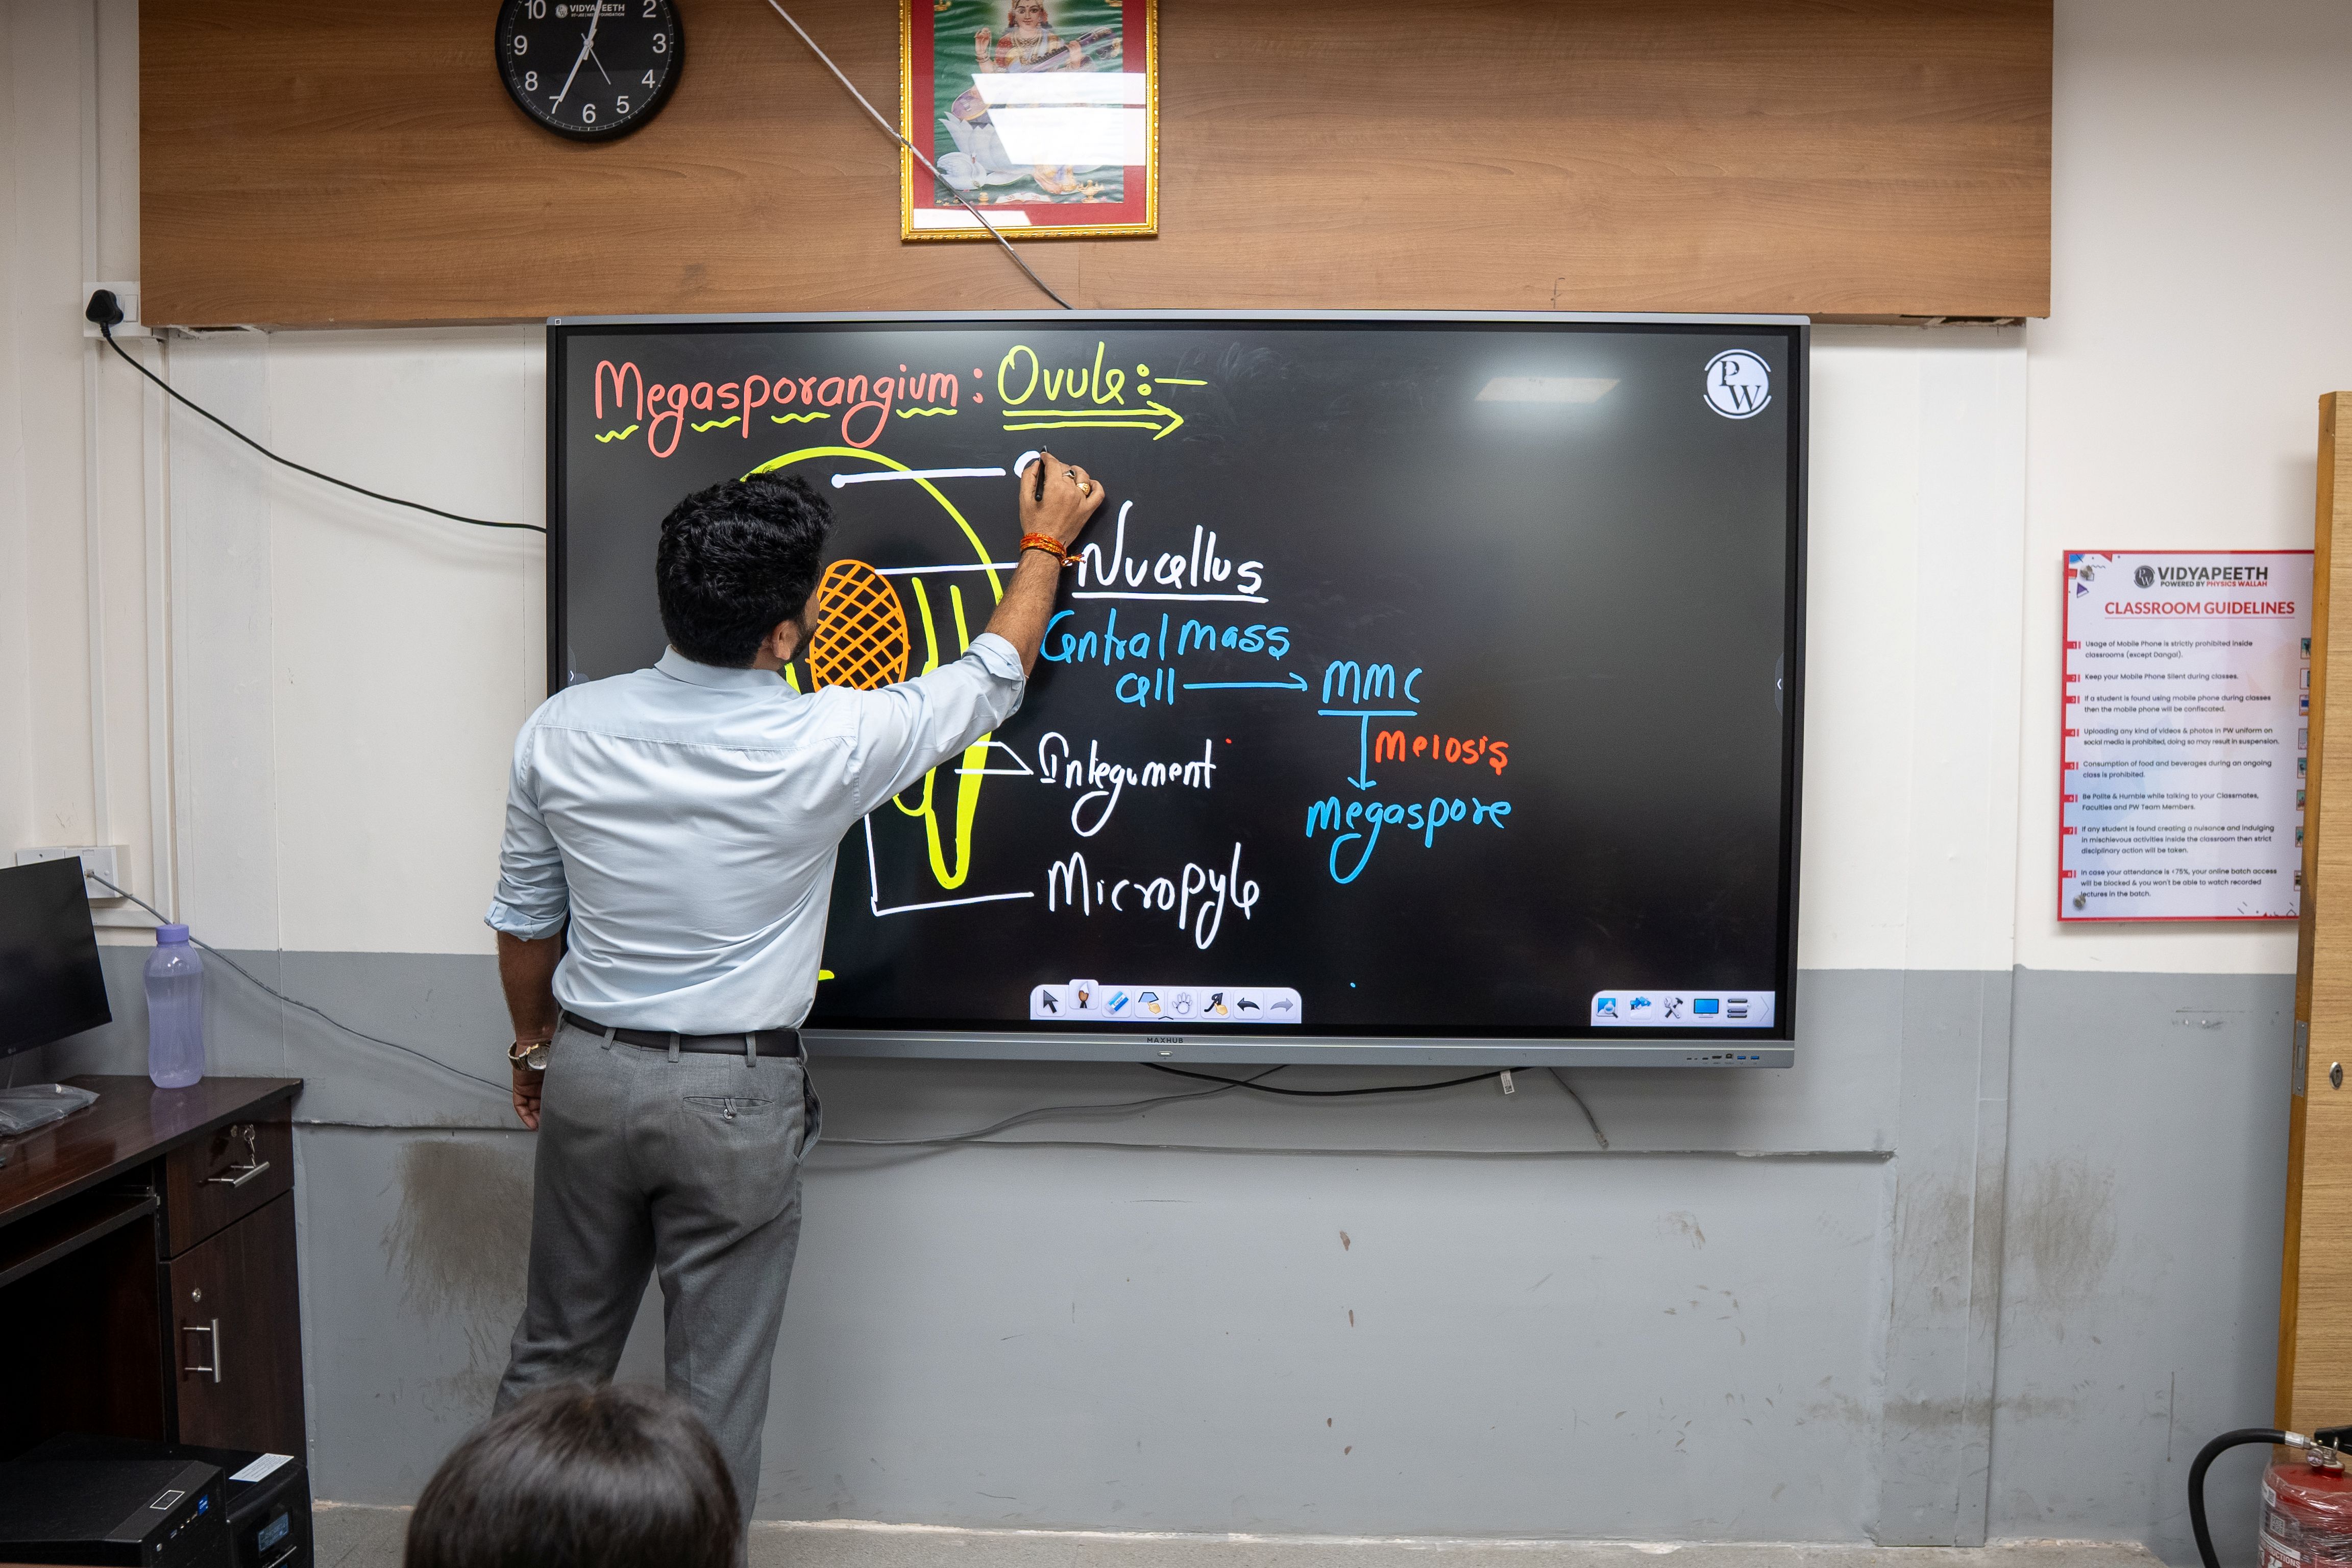 10 2
9 3
8 4
7 6 5
VIDYAPEETH
Megasporangium : Ovule :-
PW
Nucellus
Central mass
Cell → MMC
Meiosis
Integument
megaspore
Micropyle
MAXHUB
VIDYAPEETH
POWERED BY PHYSICS WALLAH
CLASSROOM GUIDELINES
Usage of Mobile Phone is strictly prohibited inside
classrooms (except Dangal).
Keep your Mobile Phone Silent during classes.
If a student is found using mobile phone during classes
then the mobile phone will be confiscated.
Uploading any kind of videos & photos in PW uniform on
social media is prohibited, doing so may result in suspension.
Consumption of food and beverages during an ongoing
class is prohibited.
Be Polite & Humble while talking to your Classmates,
Faculties and PW Team Members.
If any student is found creating a nuisance and indulging
in mischievous activities inside the classroom then strict
disciplinary action will be taken.
In case your attendance is <75%, your online batch access
will be blocked & you won't be able to watch recorded
lectures in the batch.